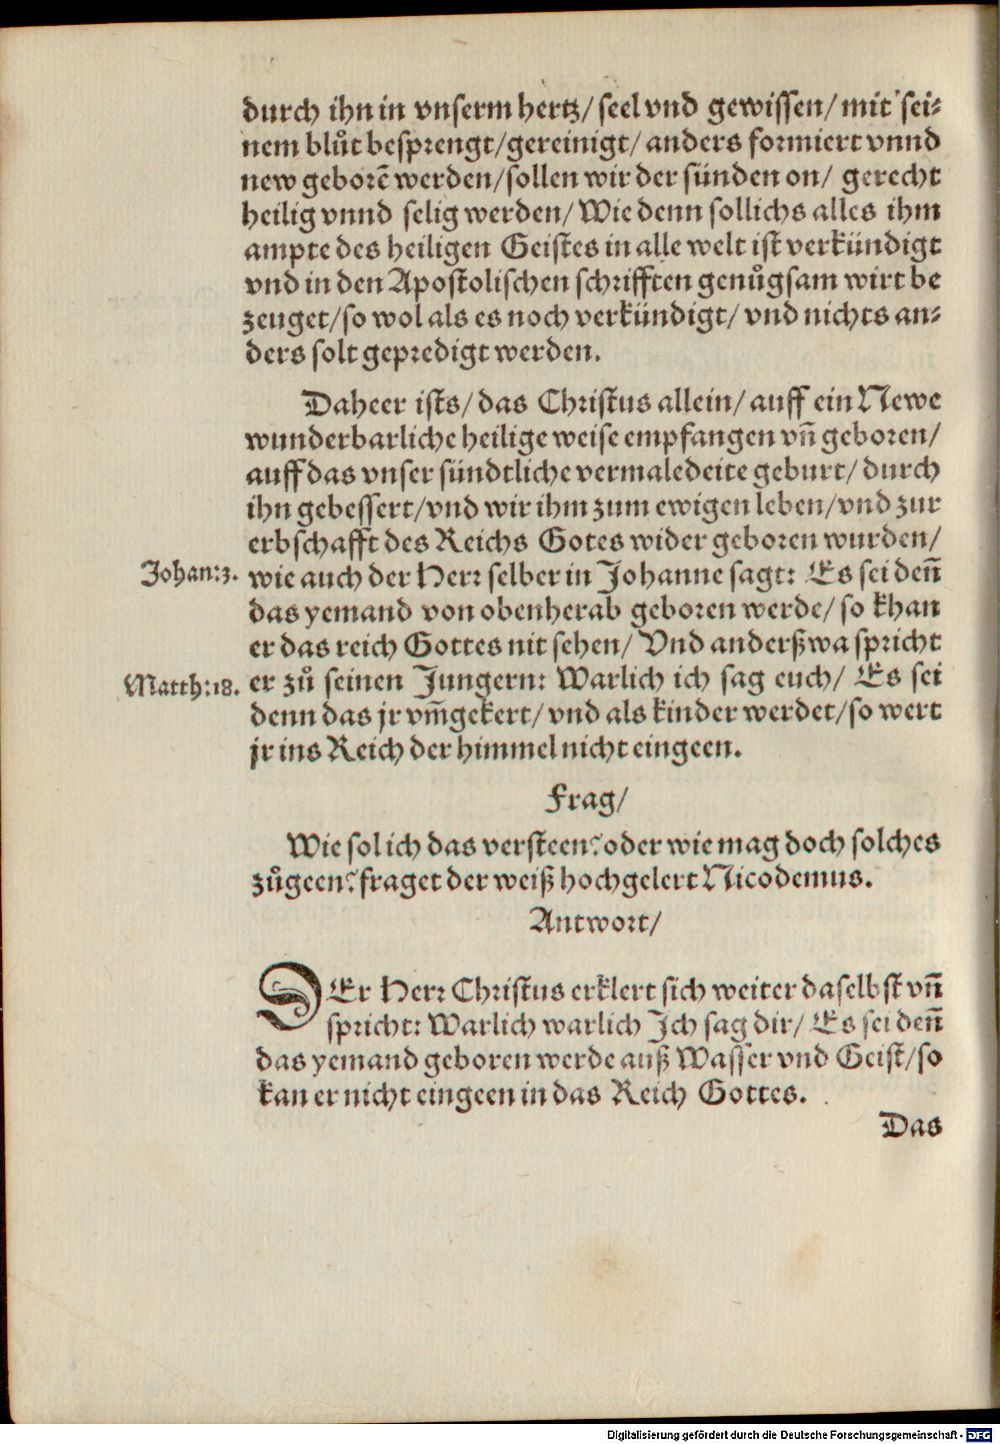 durch ihn in vnserm hertz/ seel vnd gewissen/ mit sei-
nem blůt besprengt/ gereinigt/ anders formiert vnnd
new geborẽ werden/ sollen wir der sünden on/ gerecht
heilig vnnd selig werden/ Wie denn sollichs alles ihm
ampte des heiligen Geistes in alle welt ist verkündigt
vnd in den Apostolischen schrifften genůgsam wirt be
zeuget/ so wol als es noch verkündigt/ vnd nichts an-
ders solt gepredigt werden.
Daheer ists/ das Christus allein/ auff ein Newe
wunderbarliche heilige weise empfangen vñ geboren/
auff das vnser sündtliche vermaledeite geburt/ durch
ihn gebessert/ vnd wir ihm zum ewigen leben/ vnd zur
erbschafft des Reichs Gotes wider geboren wurden/
Johan:3. wie auch der Herr selber in Johanne sagt: Es sei deñ
das yemand von obenherab geboren werde/ so khan
er das reich Gottes nit sehen/ Vnd anderßwa spricht
Matth:18. er zů seinen Jungern: Warlich ich sag euch/ Es sei
denn das jr vm̃gekert/ vnd als kinder werdet/ so wert
jr ins Reich der himmel nicht eingeen.
Frag/
Wie sol ich das versteen? oder wie mag doch solches
zůgeen? fraget der weiß hochgelert Nicodemus.
Antwort/
DEr Herr Christus erklert sich weiter daselbst vñ
spricht: Warlich warlich Jch sag dir/ Es sei deñ
das yemand geboren werde auß Wasser vnd Geist/ so
kan er nicht eingeen in das Reich Gottes.
Das
Digitalisierung gefördert durch die Deutsche Forschungsgemeinschaft - DFG